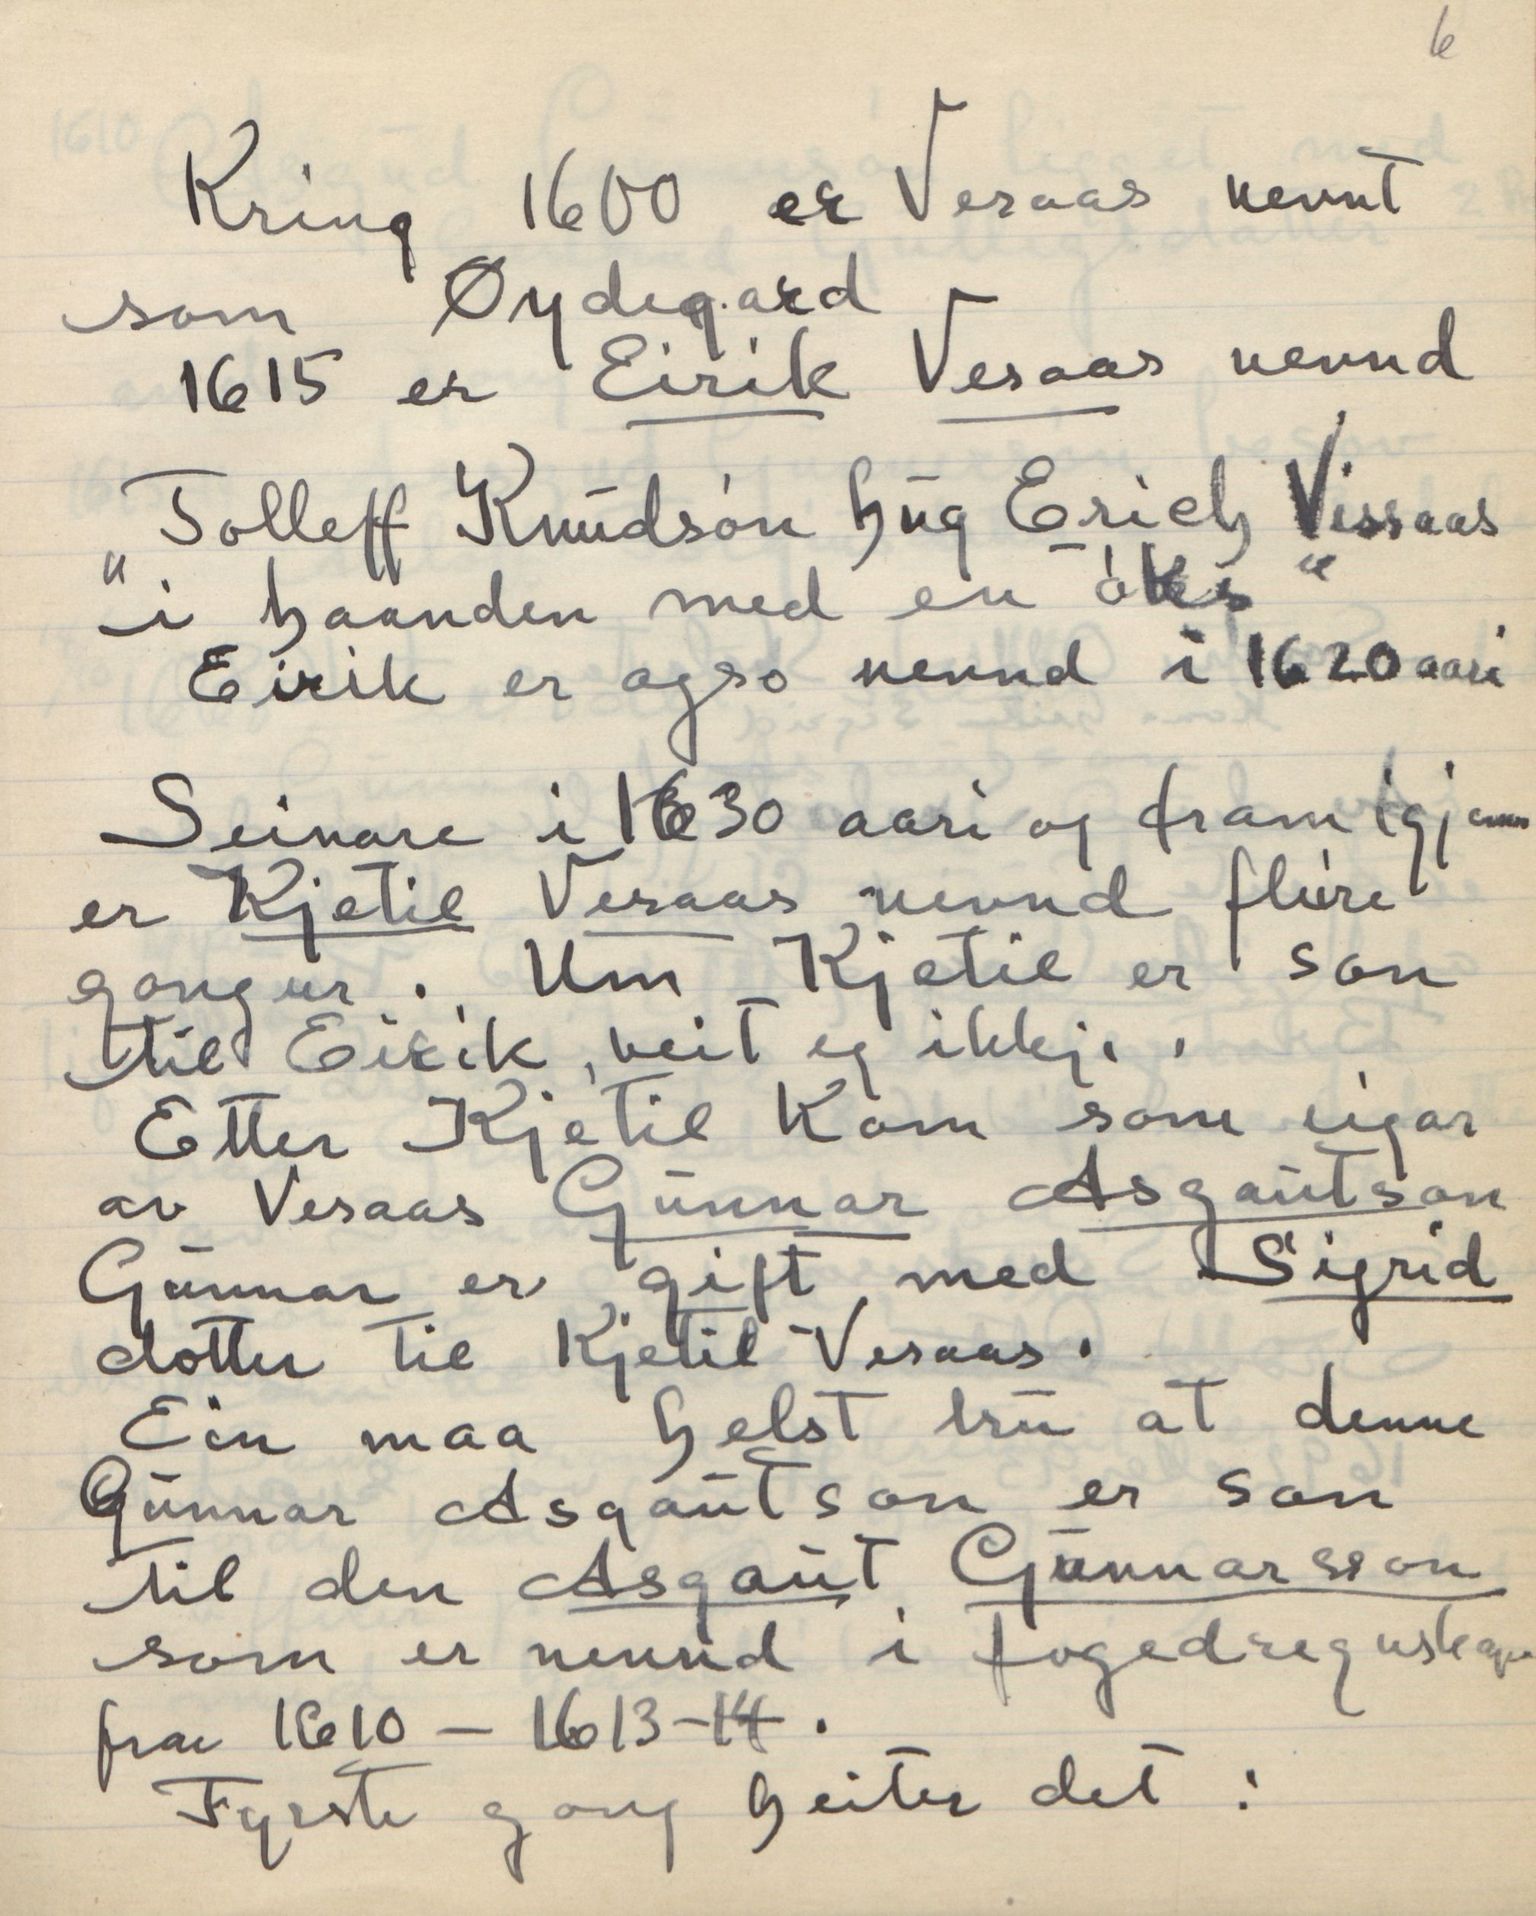 6
Kring 1600 er Vesaas nevnt
som Øydegard
1615 er Eirik Vesaas nevnd
Tolleff Knudsón hug Erich Vissaas
"i haanden med en óks"
Eirik er ogso nevnd i 1620 aari
Seinare i 1630 aari og framigjenn
er Kjetil Vesaas nevnd fleire
gongur. Um Kjetil er son
til Eirik, veit eg ikkje.
Etter Kjetil kom som eigar
av Vesaas Gunnar Asgautson
Gunnar er gift med Sigrid
dotter til Kjetil Vesaas.
Ein maa helst tru at denne
Gunnar Asgautson er son
til den Asgaut Gunnarsson
som er nevnd i fogedregnskapen
fraa 1610 – 1613-14.
Fyrste gong heiter det :